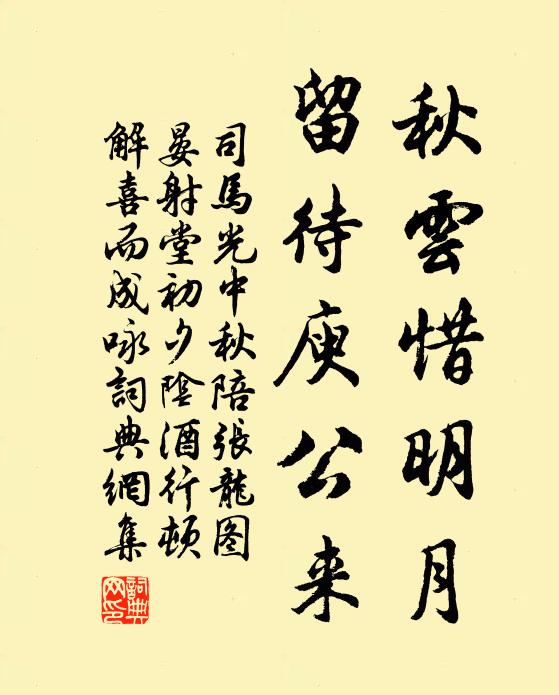 秋雲惜明月
留待庾公来
司馬光中秋陪張龍图
晏射堂初夕陰酒行頓
解喜而成咏詞典網集
詞典網印